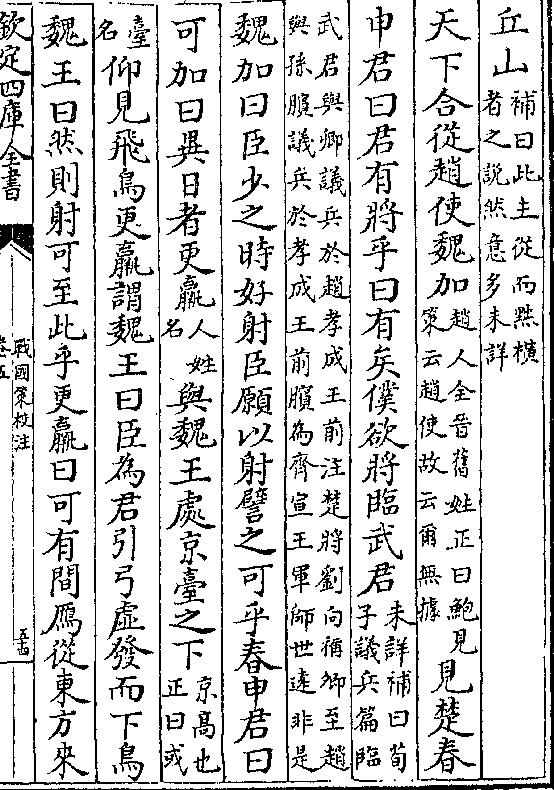 丘山補曰此主從而黜橫者之説然意多未詳
天下合從趙使魏加趙人全晉舊姓正曰鮑見策云趙使故云爾無據見楚春
申君曰君有將乎曰有矣僕欲將臨武君未詳補曰荀子議兵篇臨
武君與卿議兵於趙孝成王前注楚將劉向稱卿至趙
與孫臏議兵於孝成王前臏為齊宣王軍師世逺非是
魏加曰臣少之時好射臣願以射譬之可乎春申君曰
可加曰異日者更羸人姓名與魏王處京臺之下京髙也正曰或
臺名仰見飛鳥更羸謂魏王曰臣為君引弓虚發而下鳥
魏王曰然則射可至此乎更羸曰可有間鴈從東方來
欽定四庫全書
戰國策校注
卷五